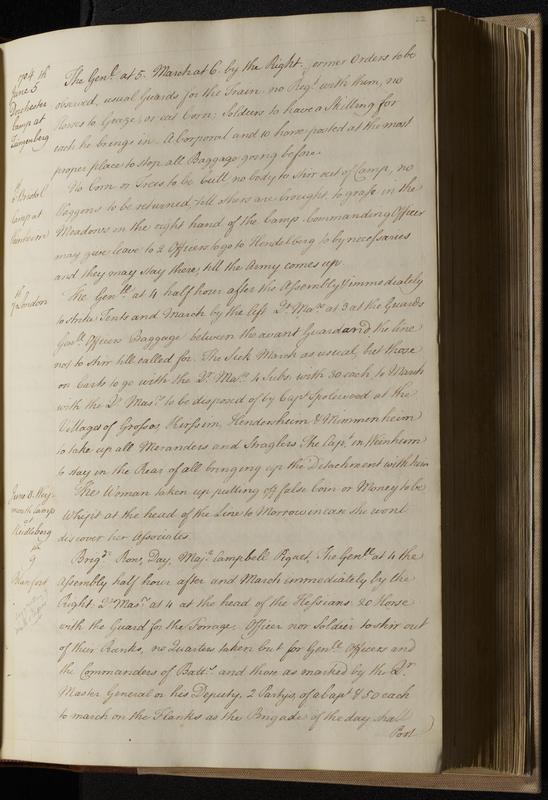 22
1704 th
June 5
Dorchester
Camp at
The Genll. at 5. March at 6. by the Right. former Orders to be
observed, usual Guards for the Train no Regt. with them, no
Horses to Graze, or eat Corn; Soldiers to have a Shilling for
each he brings in. A Corporal and 10 horse posted at the most
proper place to stop all Baggage going before.
6 Bristol
Camp at
No Corn or Trees to be cutt no body to stir out of Camp, no
Waggons to be returned, till others are brought, to grase in the
Meadows in the right hand of the Camp. Commanding Officer
may give leave to 2 Officers to go to Hendelberg to by necessaries
and they may stay there, till the Army comes up.
th
7 London
The Genll. at 4 half hour after the Assembly & immediately
to strike Tents and March by the left Qr. Masrs. at 3 at the Guards
Genll. Officers Baggage between the avant Guard and the line
not to stir till called for. The Sick March as usual, but those
on Carts to go with the Qr. Masrs. 4 Subs. with 30 each, to March
with the Qr. Masrs. to be disposed of by Capt. Spotswood at the
Villages of Grosos, Kersim, Hendersheim & Nimmenheim
to take up all Meranders and Straglers. The Capt. in Weinheim
to stay in the Rear of all bringing up the Detachment with him
June 8. Wey-
mouth Camp
at
Heidleberg
The Woman taken up putting off false Coin or Money to be
Whipt at the head of the Line to Morrow in case she wont
discover her Associates.
th
9
Stanford
Brigr. Row, Day, Majr. Campbell Piquet, The Genll. at 4 the
Assembly half hour after and March immediately by the
Right. Qr. Masrs. at 4 at the head of the Hessians. 20 Horse
with the Guard for the Forrage. Officer nor Soldier to stir out
of their Ranks, no Quarters taken but for Genll. Officers and
the Commanders of Battns. and them as marked by the Qr.
Master General or his Deputy, 2 Partys, of a Capt. & 50 each
to march on the Flanks as the Brigade of the day shall
Post